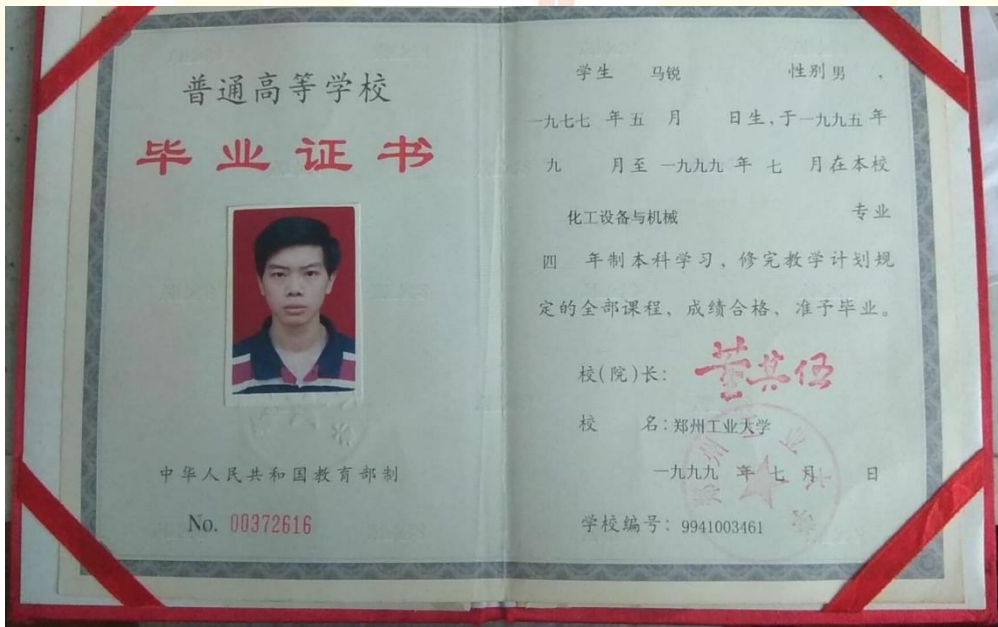 普通高等学校
毕业证书
中华人民共和国教育部制
No. 00372616
学生 马锐 性别 男 ，
一九七七 年 五 月 日生，于 一九九五 年
九 月至 一九九九 年 七 月在本校
化工设备与机械 专业
四 年制本科学习、修完教学计划规
定的全部课程，成绩合格、准予毕业。
校(院)长： 董其伍
校 名：郑州工业大学
一九九九 年 七 月 日
学校编号：9941003461